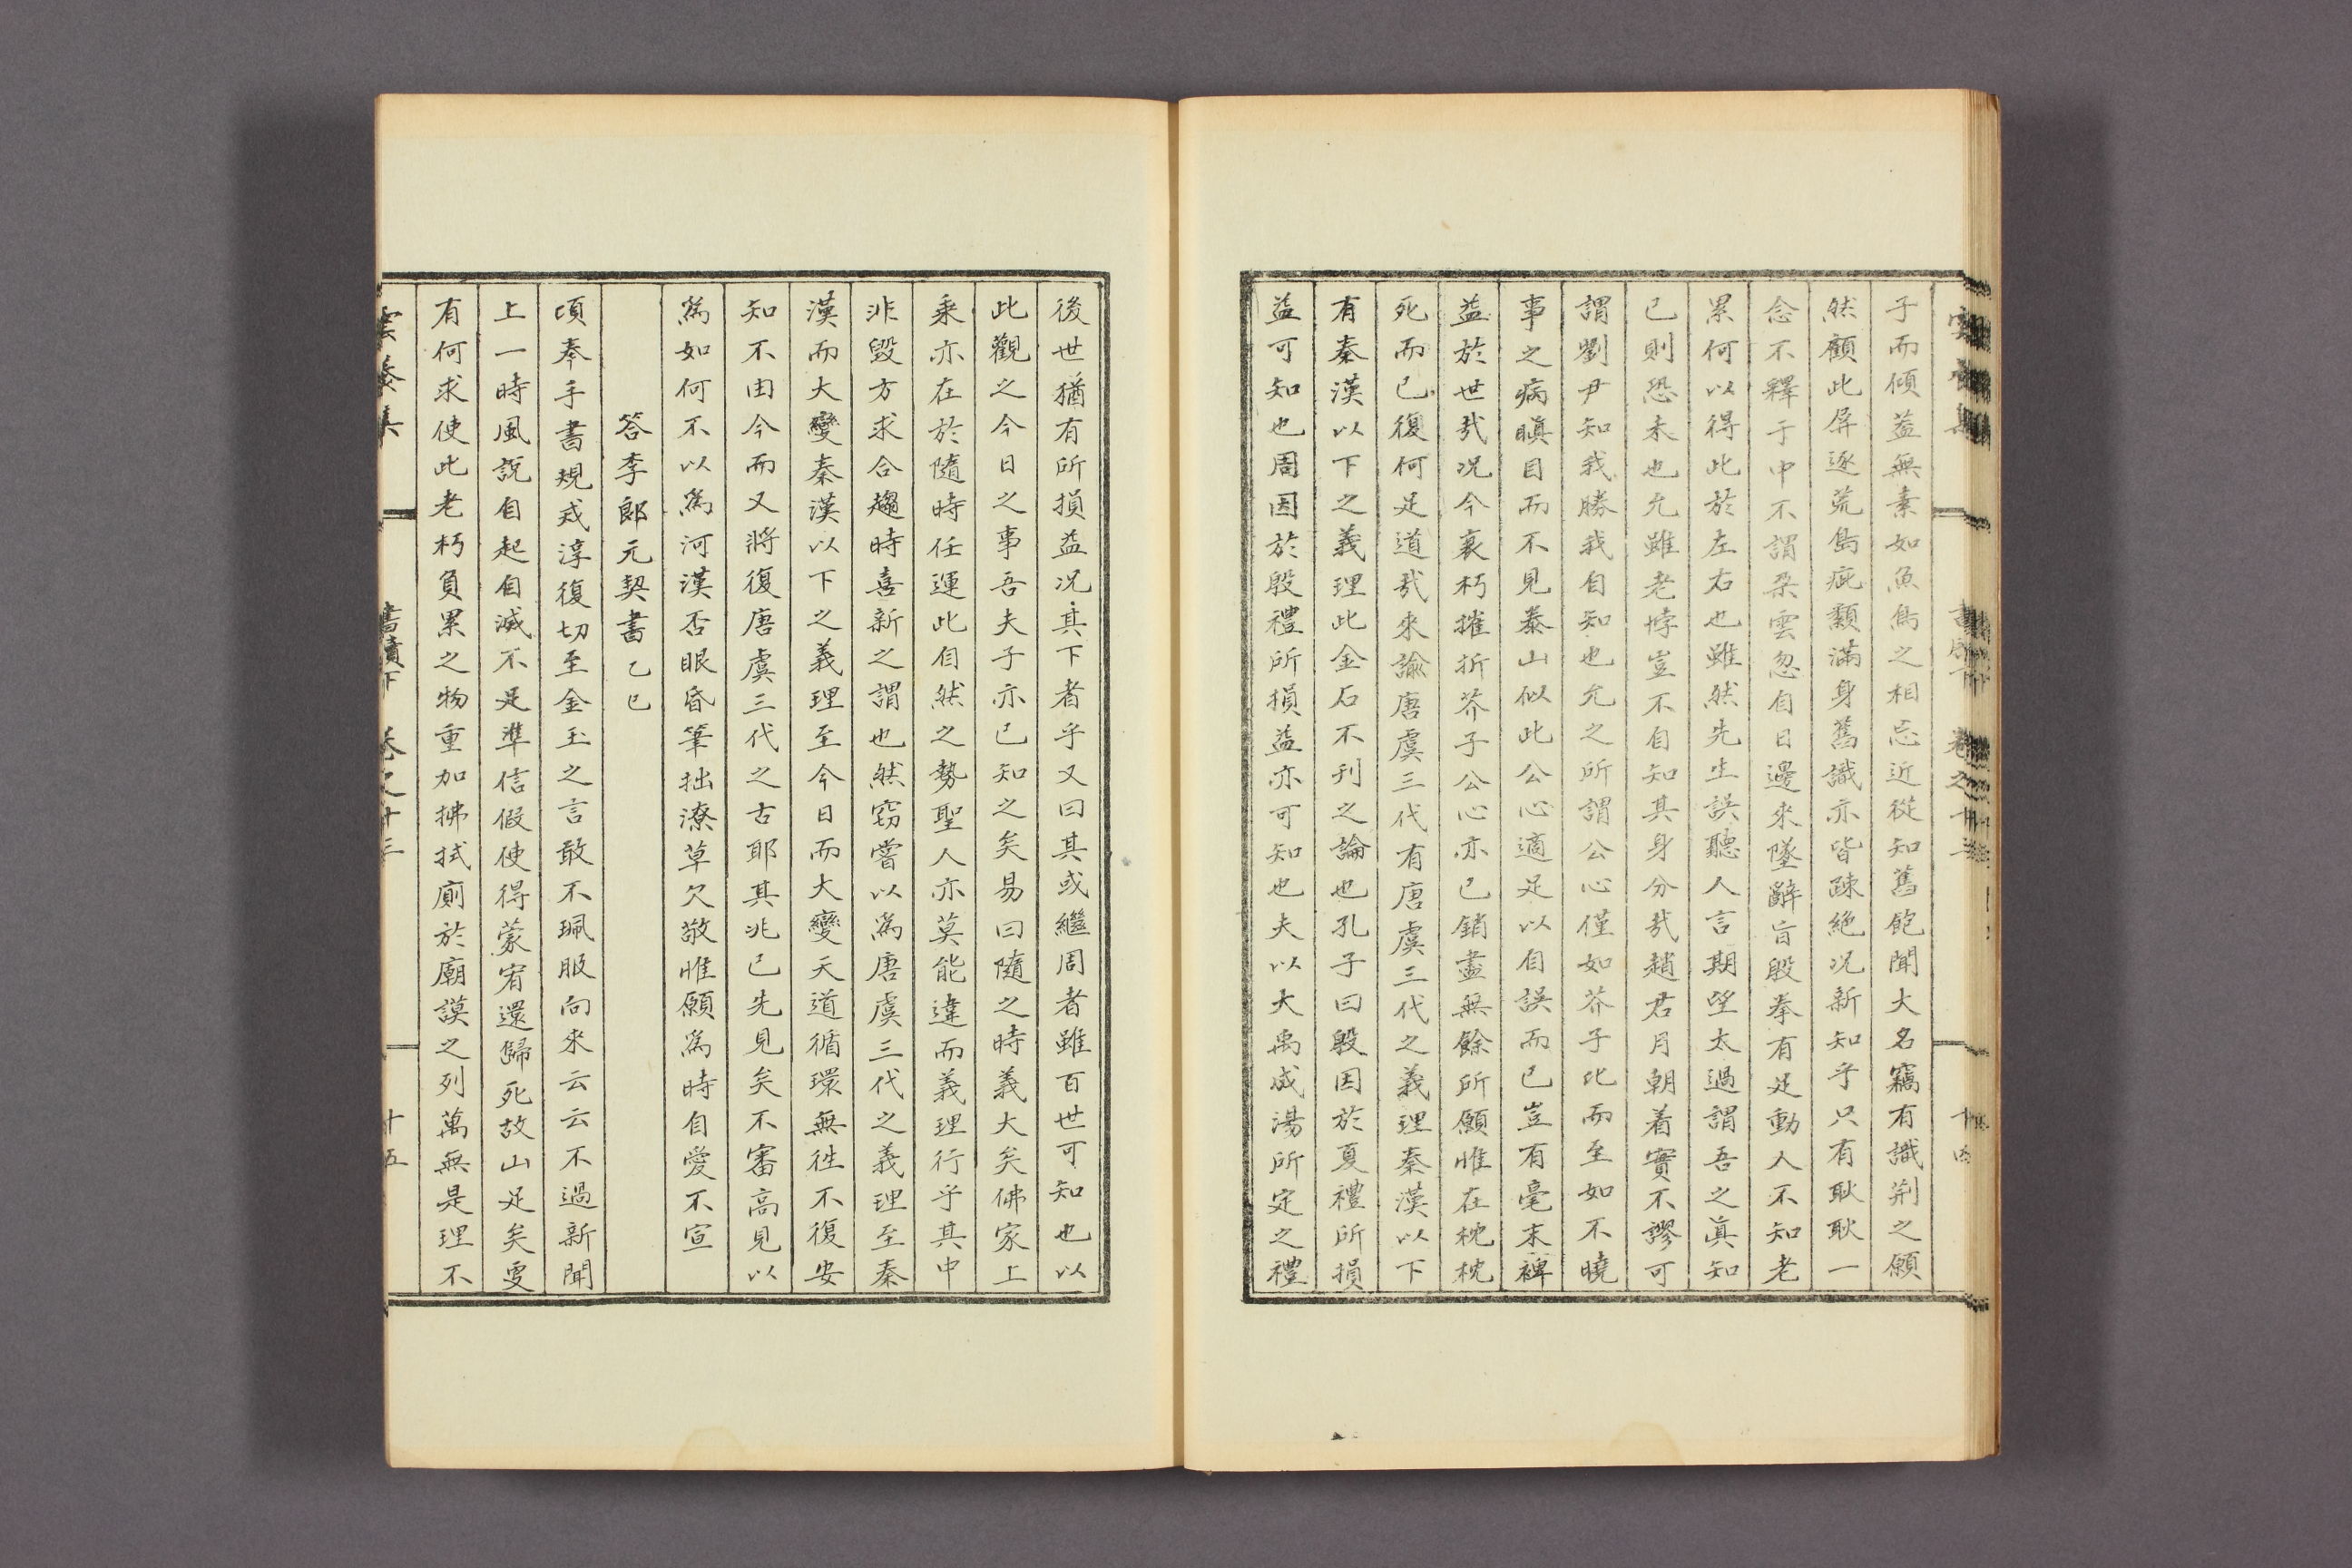 子而傾盖無素如魚鳥之相忘近從知舊飽聞大名竊有識荊之願
然顧此屏逐荒島疵纇滿身舊識亦皆踈絶况新知乎只有耿耿一
念不釋于中不謂朶雲忽自日邊來墜辭旨殷拳有足動人不知老
累何以得此於左右也雖然先生誤聽人言期望太過謂吾之眞知
已則恐未也允雖老悖豈不自知其身分哉趙君月朝着實不謬可
謂劉尹知我勝我自知也允之所謂公心僅如芥子比而至如不曉
事之病瞋目而不見泰山似此公心適足以自誤而已豈有毫末裨
益於世哉况今衰朽摧折芥子公心亦已銷盡無餘所願惟在枕枕
死而已復何足道哉來諭唐虞三代有唐虞三代之義理秦漢以下
有秦漢以下之義理此金石不刊之論也孔子曰殷因於夏禮所損
益可知也周因於殷禮所損益亦可知也夫以大禹成湯所定之禮
書牘下 卷之十三
十四
後世猶有所損益况其下者乎又曰其或繼周者雖百世可知也以
此觀之今日之事吾夫子亦已知之矣易曰隨之時義大矣佛家上
乘亦在於隨時任運此自然之勢聖人亦莫能違而義理行乎其中
非毀方求合趨時喜新之謂也然窃嘗以爲唐虞三代之義理至秦
漢而大變秦漢以下之義理至今日而大變天道循環無徃不復安
知不由今而又將復唐虞三代之古耶其兆已先見矣不審高見以
爲如何不以爲河漢否眼昏筆拙潦草欠敬惟願爲時自愛不宣
答李郎元契書 乙巳
頃奉手書規戒淳復切至金玉之言敢不珮服向來云云不過新聞
上一時風說自起自滅不足準信假使得蒙宥還歸死故山足矣更
有何求使此老朽負累之物重加拂拭廁於廟謨之列萬無是理不
雲養集 書牘下 卷之十三
十五